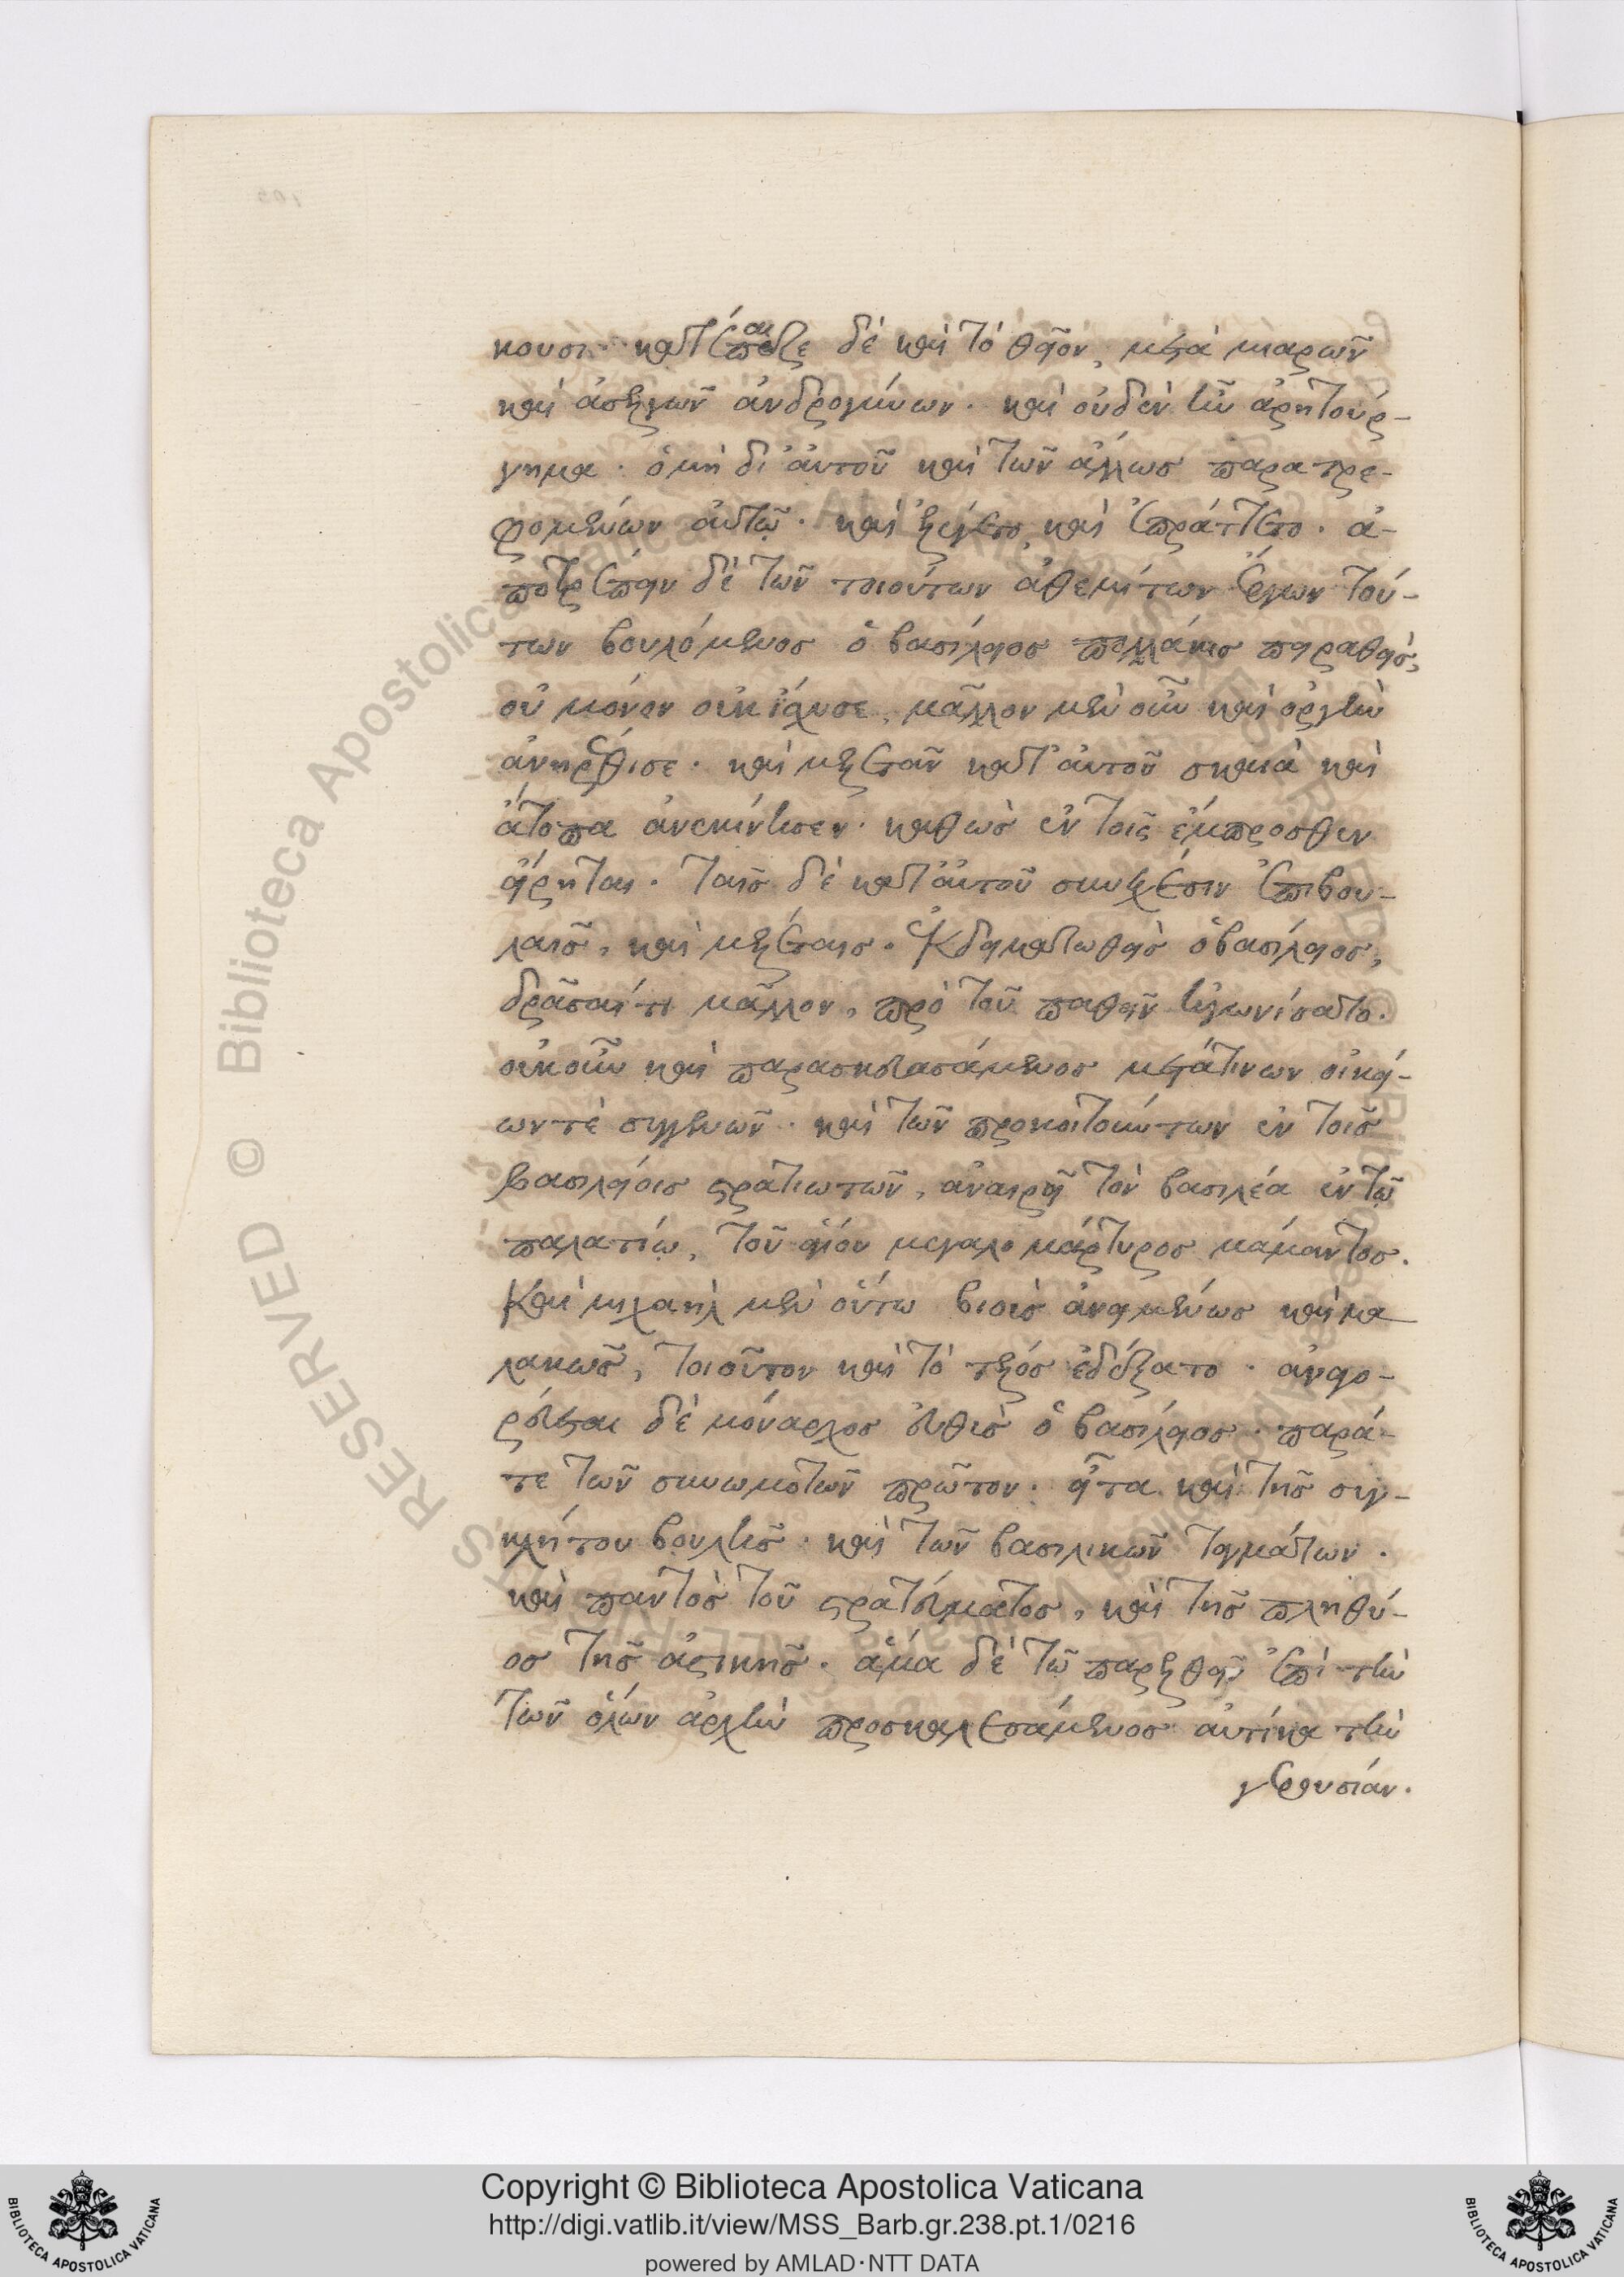 κουσι· κατέπαιζε δὲ καὶ τὸ θεῖον, μετὰ μιαρῶν
καὶ ἀσελγῶν ἀνδρογύνων. καὶ οὐδὲν ἦν ἀρητούρ-
γημα. ὃ μὴ δι' αὐτοῦ καὶ τῶν ἄλλως παρατρε-
φομένων αὐτῷ. καὶ ἐλέγετο καὶ ἐπράττετο. ἀ-
ποτρέπειν δὲ τῶν τοιούτων ἀθεμίτων ἔργων τού-
των βουλόμενος ὁ βασίλειος πολλάκις πειραθεὶς,
οὐ μόνον οὐκ ἴσχυσε, μᾶλλον μὲν οὖν καὶ ὀργὴν
ἀνηρέθισε. καὶ μελετᾶν κατ' αὐτοῦ σκαιὰ καὶ
ἄτοπα ἀνεκίνησεν· καθὼς ἐν τοῖς ἔμπροσθεν
εἴρηται. ταῖς δὲ κατ' αὐτοῦ συνεχέσιν ἐπιβου-
λαῖς, καὶ μελέταις. ἐκδειματωθεὶς ὁ βασίλειος,
δρᾶσαί τι μᾶλλον, πρὸ τοῦ παθεῖν ἠγωνίσατο.
οὐκοῦν καὶ παρασκευασάμενος μετά τινων οἰκεί-
ων τὲ συγγενῶν. καὶ τῶν προκοιτούντων ἐν τοῖς
βασιλείοις στρατιωτῶν, ἀναιρεῖ τὸν βασιλέα ἐν τῷ
παλατίῳ, τοῦ ἁγίου μεγαλομάρτυρος μάμαντος.
Καὶ μιχαὴλ μὲν οὕτω βιοὺς ἀνειμένως καὶ μα
λακῶς, τοιοῦτον καὶ τὸ τέλος ἐδέξατο. ἀναγο-
ρεύεται δὲ μόναρχος εὐθὺς ὁ βασίλειος. παρά-
τε τῶν συνωμοτῶν πρῶτον. εἶτα καὶ τῆς συγ-
κλήτου βουλῆς. καὶ τῶν βασιλικῶν ταγμάτων.
καὶ παντὸς τοῦ στρατεύματος, καὶ τῆς πληθύ-
ος τῆς ἀστικῆς. ἅμα δὲ τῷ παρελθεῖν ἐπὶ τὴν
τῶν ὅλων ἀρχὴν προσκαλεσάμενος αὐτίκα τὴν
γερουσίαν.
Copyright © Biblioteca Apostolica Vaticana
http://digi.vatlib.it/view/MSS_Barb.gr.238.pt.1/0216
powered by AMLAD·NTT DATA